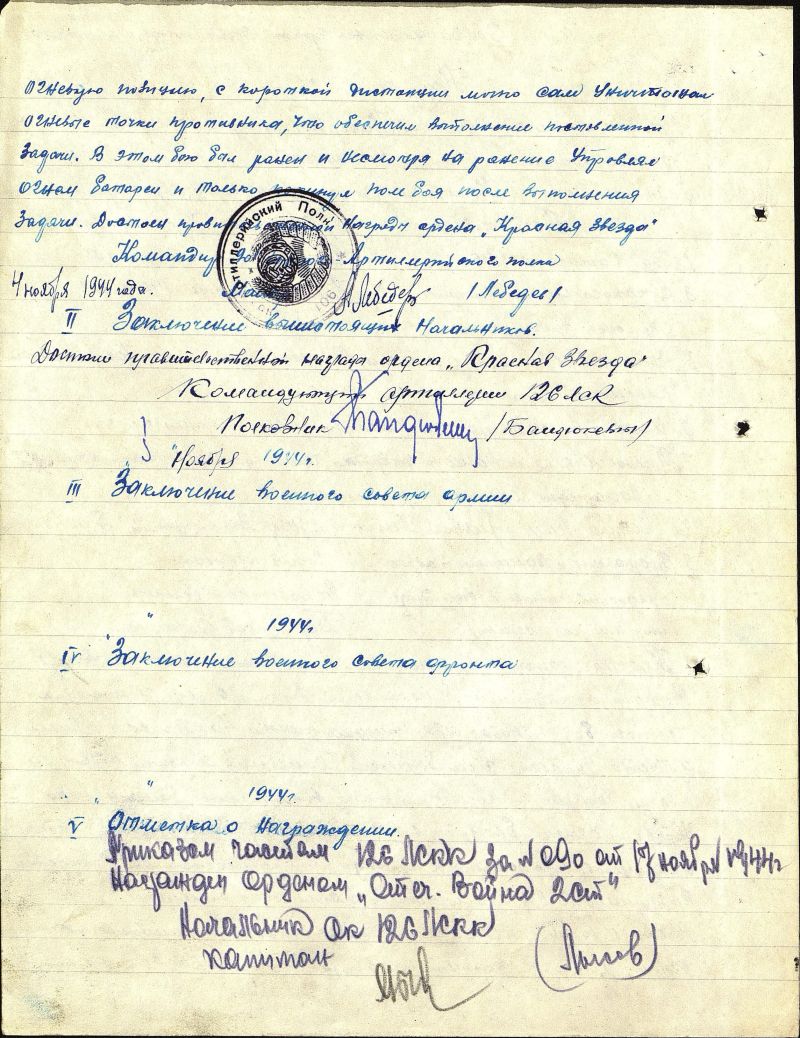 огневую позицию, с короткой дистанции лично сам уничтожал
огневые точки противника, что обеспечил выполнение поставленной
задачи. В этом бою был ранен и несмотря на ранение управлял
огнем батареи и только покинул поле боя после выполнения
задачи. Достоен правительственной награды ордена „Красная Звезда"
Командир Артиллерийского полка
Артиллерийский Полк
4 ноября 1944 года. Майор /Лебедев/
II Заключение вышестоящих начальников.
Достоин правительственной награды ордена „Красная Звезда"
Командующий артиллерии 126 ЛСК
Полковник
" Ноября 1944 г.
III Заключение военного совета армии
" " 1944 г.
IV Заключение военного совета фронта
" " 1944 г.
V Отметка о награждении.
Приказом частям 126 ЛСКК за № 090 от 17 ноября 1944 г
Награжден Орденом „Отеч. Война 2 ст"
Начальник ОК 126 ЛСКК
капитан